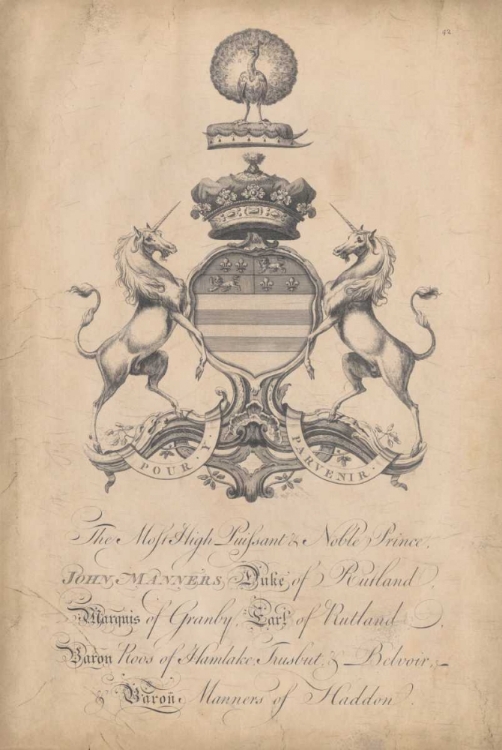 42
POUR Y PARVENIR
The Most High Puissant & Noble Prince.
JOHN MANNERS, Duke of Rutland.
Marquis of Granby, Earl of Rutland,
Baron Roos of Hamlake, Trusbut, & Belvoir,
& Baron Manners of Haddon.